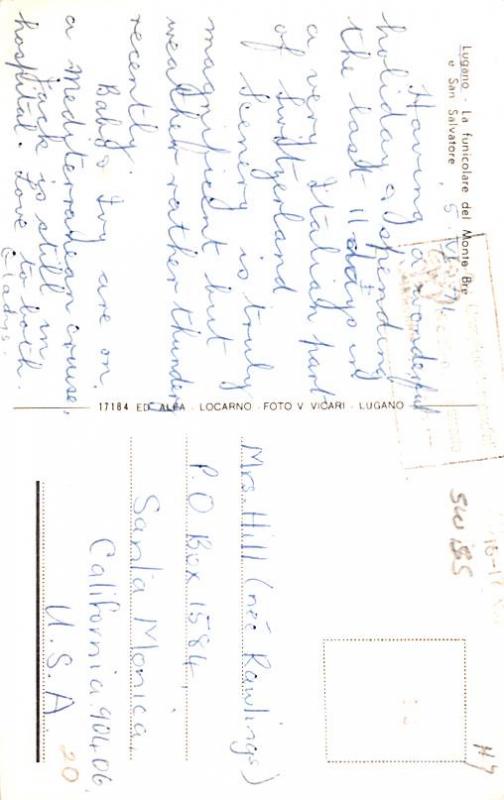 Lugano - La funicolare del Monte Bre
e San Salvatore
5. VI. 71.
Having a wonderful
holiday & spending
the last 11 days in
a very Italian part
of Switzerland
Scenery is truly
magnificent but
weather rather thundery
recently.
Bab & Ivy are on
a Mediterranean cruise,
Jack is still in
hospital. Love to both.
Gladys.
17184 ED. ALFA - LOCARNO - FOTO V. VICARI - LUGANO
Mrs. Hill (neé Rawlings)
P.O Box 1584,
Santa Monica,
California 90406,
U.S.A.
20
SW 185
H7